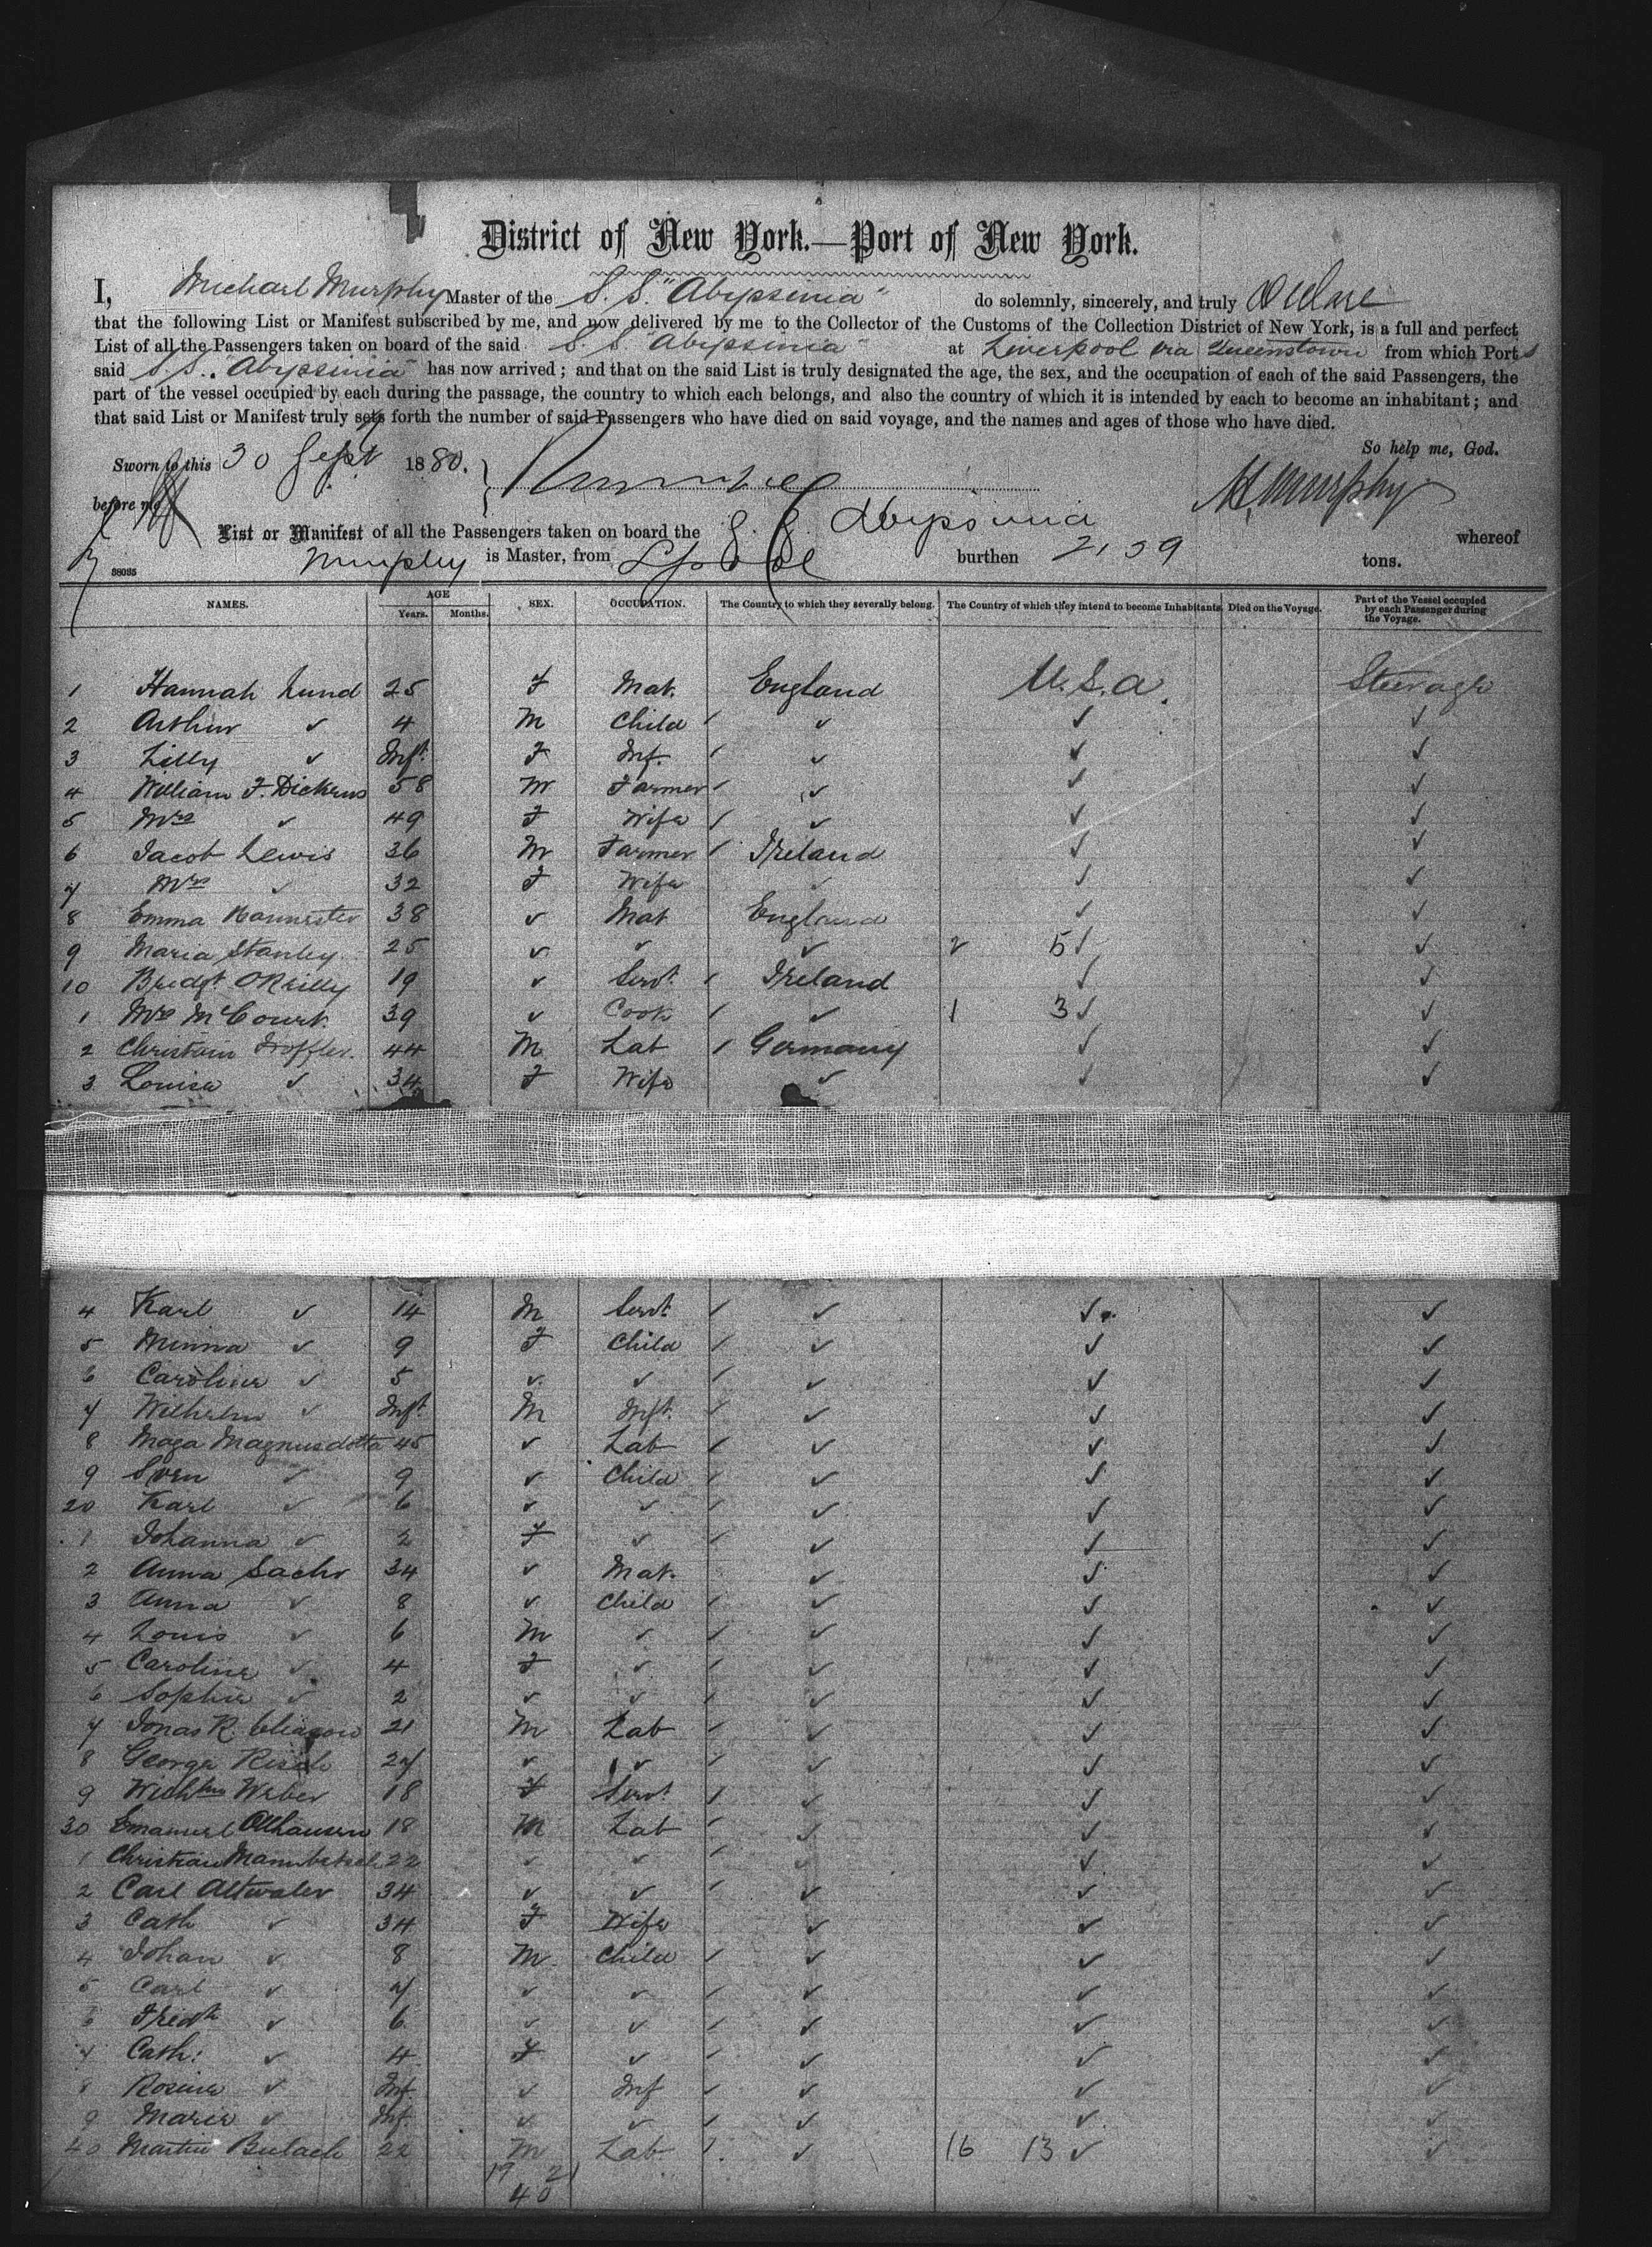 District of New York.—Port of New York.
I, Michael Murphy Master of the S.S. "Abyssinia" do solemnly, sincerely, and truly declare
that the following List or Manifest subscribed by me, and now delivered by me to the Collector of the Customs of the Collection District of New York, is a full and perfect
List of all the Passengers taken on board of the said S.S "Abyssinia" at Liverpool via Queenstown from which Ports
said S.S. "Abyssinia" has now arrived; and that on the said List is truly designated the age, the sex, and the occupation of each of the said Passengers, the
part of the vessel occupied by each during the passage, the country to which each belongs, and also the country of which it is intended by each to become an inhabitant; and
that said List or Manifest truly sets forth the number of said Passengers who have died on said voyage, and the names and ages of those who have died.
So help me, God.
Sworn to this 30 Sept 1880.
before me
M. Murphy
List or Manifest of all the Passengers taken on board the S.S. Abyssinia whereof
Murphy is Master, from Lpool burthen 2159 tons.
38035
NAMES. AGE Years. Months. SEX. OCCUPATION. The Country to which they severally belong. The Country of which they intend to become Inhabitants. Died on the Voyage. Part of the Vessel occupied by each Passenger during the Voyage.
1 Hannah Lund 25 F Mat. England U.S.A. Steerage
2 Arthur ✓ 4 M Child / ✓ ✓ ✓
3 Lilly ✓ Inft. F Inf. / ✓ ✓ ✓
4 William F. Dickens 58 M Farmer / ✓ ✓ ✓
5 Mrs ✓ 49 F Wife / ✓ ✓ ✓
6 Jacob Lewis 36 M Farmer / Ireland ✓ ✓
7 Mrs ✓ 32 F Wife ✓ ✓ ✓
8 Emma Bannister 38 ✓ Mat England ✓ ✓
9 Maria Stanley 25 ✓ ✓ ✓ 2 5 ✓ ✓
10 Bridgt. OReilly 19 ✓ Servt. / Ireland ✓ ✓
1 Mrs McCourt. 39 ✓ Cook / ✓ 1 3 ✓ ✓
2 Christain 44 M Lab / Germany ✓ ✓
3 Louisa ✓ 34 F Wife ✓ ✓ ✓
4 Karl ✓ 14 M Servt / ✓ ✓ ✓
5 Minna ✓ 9 F Child / ✓ ✓ ✓
6 Caroline ✓ 5 ✓ ✓ / ✓ ✓ ✓
7 Wilhelm ✓ Inft. M Inft. / ✓ ✓ ✓
8 Maga Magnusdotta 45 ✓ Lab / ✓ ✓ ✓
9 Sven ✓ 9 ✓ Child / ✓ ✓ ✓
20 Karl ✓ 6 ✓ ✓ / ✓ ✓ ✓
1 Johanna ✓ 2 F ✓ / ✓ ✓ ✓
2 Anna Sachs 34 ✓ Mat. ✓ ✓ ✓
3 Anna ✓ 8 ✓ Child / ✓ ✓ ✓
4 Louis ✓ 6 M ✓ / ✓ ✓ ✓
5 Caroline ✓ 4 F ✓ / ✓ ✓ ✓
6 Sophie ✓ 2 ✓ ✓ / ✓ ✓ ✓
7 Jonas R. 21 M Lab / ✓ ✓ ✓
8 George 27 ✓ ✓ / ✓ ✓ ✓
9 Weber 18 F Servt / ✓ ✓ ✓
30 Emanuel Olthausen 18 M Lab / ✓ ✓ ✓
1 Christian 22 ✓ ✓ / ✓ ✓ ✓
2 Carl Altwater 34 ✓ ✓ / ✓ ✓ ✓
3 Cath ✓ 34 F Wife ✓ ✓ ✓
4 Johan ✓ 8 M Child / ✓ ✓ ✓
5 Carl ✓ 7 ✓ ✓ / ✓ ✓ ✓
6 Friedk ✓ 6 ✓ ✓ / ✓ ✓ ✓
7 Cath: ✓ 4 F ✓ / ✓ ✓ ✓
8 Rosina ✓ Inf. ✓ Inf / ✓ ✓ ✓
9 Maria ✓ Inf. ✓ ✓ / ✓ ✓ ✓
40 Martin Bulach 22 M Lab / ✓ 16 13 ✓ ✓
19 21
40